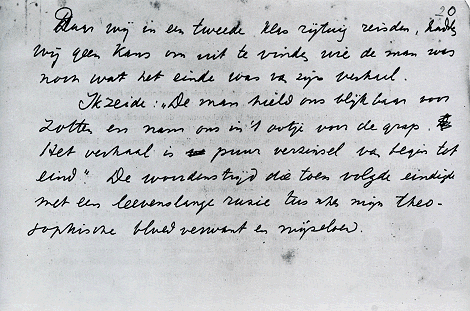 20
Daar wij in een tweede klas rijtuig reisden, hadden
wij geen kans om uit te vinden wie de man was
noch wat het einde was van zijn verhaal.
Ik zeide: „De man hield ons blijkbaar voor
zotten en nam ons in 't ootje voor de grap.
Het verhaal is puur verzinsel van begin tot
eind". De woordenstrijd die toen volgde eindigde
met een levenslange ruzie tusschen mijn theo-
sophische bloedverwant en mijzelven.